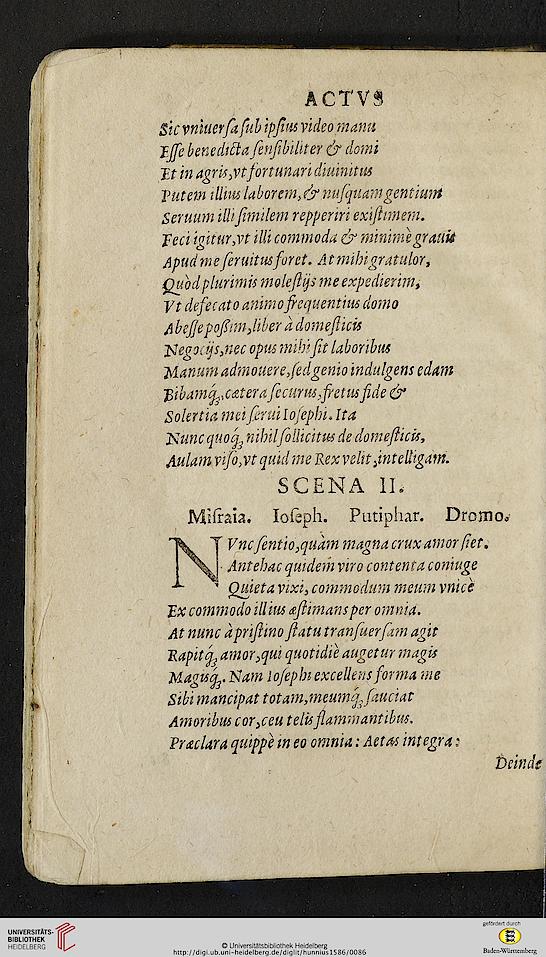 ACTVS
Sic vniuersa sub ipsius video manu
Esse benedicta sensibiliter & domi
Et in agris, vt fortunari diuinitus
Putem illius laborem, & nusquam gentium
Seruum illi similem repperiri existimem.
Feci igitur, vt illi commoda & minimè grauis
Apud me seruitus foret. At mihi gratulor,
Quòd plurimis molestijs me expedierim,
Vt defecato animo frequentius domo
Abesse poßim, liber à domesticis
Negocijs, nec opus mihi sit laboribus
Manum admouere, sed genio indulgens edam
Bibamq́ꝫ, cætera securus, fretus fide &
Solertia mei serui Iosephi. Ita
Nunc quoq́ꝫ nihil sollicitus de domesticis,
Aulam viso, vt quid me Rex velit, intelligam.
SCENA II.
Misraia. Ioseph. Putiphar. Dromo.
NVnc sentio, quàm magna crux amor siet.
Antehac quidem viro contenta coniuge
Quieta vixi, commodum meum vnicè
Ex commodo illius æstimans per omnia.
At nunc à pristino statu transuersam agit
Rapitq́ꝫ amor, qui quotidiè augetur magis
Magisq́ꝫ. Nam Iosephi excellens forma me
Sibi mancipat totam, meumq́ꝫ sauciat
Amoribus cor, ceu telis flammantibus.
Præclara quippè in eo omnia: Aetas integra:
Deinde
UNIVERSITÄTS-
BIBLIOTHEK
HEIDELBERG
© Universitätsbibliothek Heidelberg
http://digi.ub.uni-heidelberg.de/diglit/hunnius1586/0086
gefördert durch
Baden-Württemberg